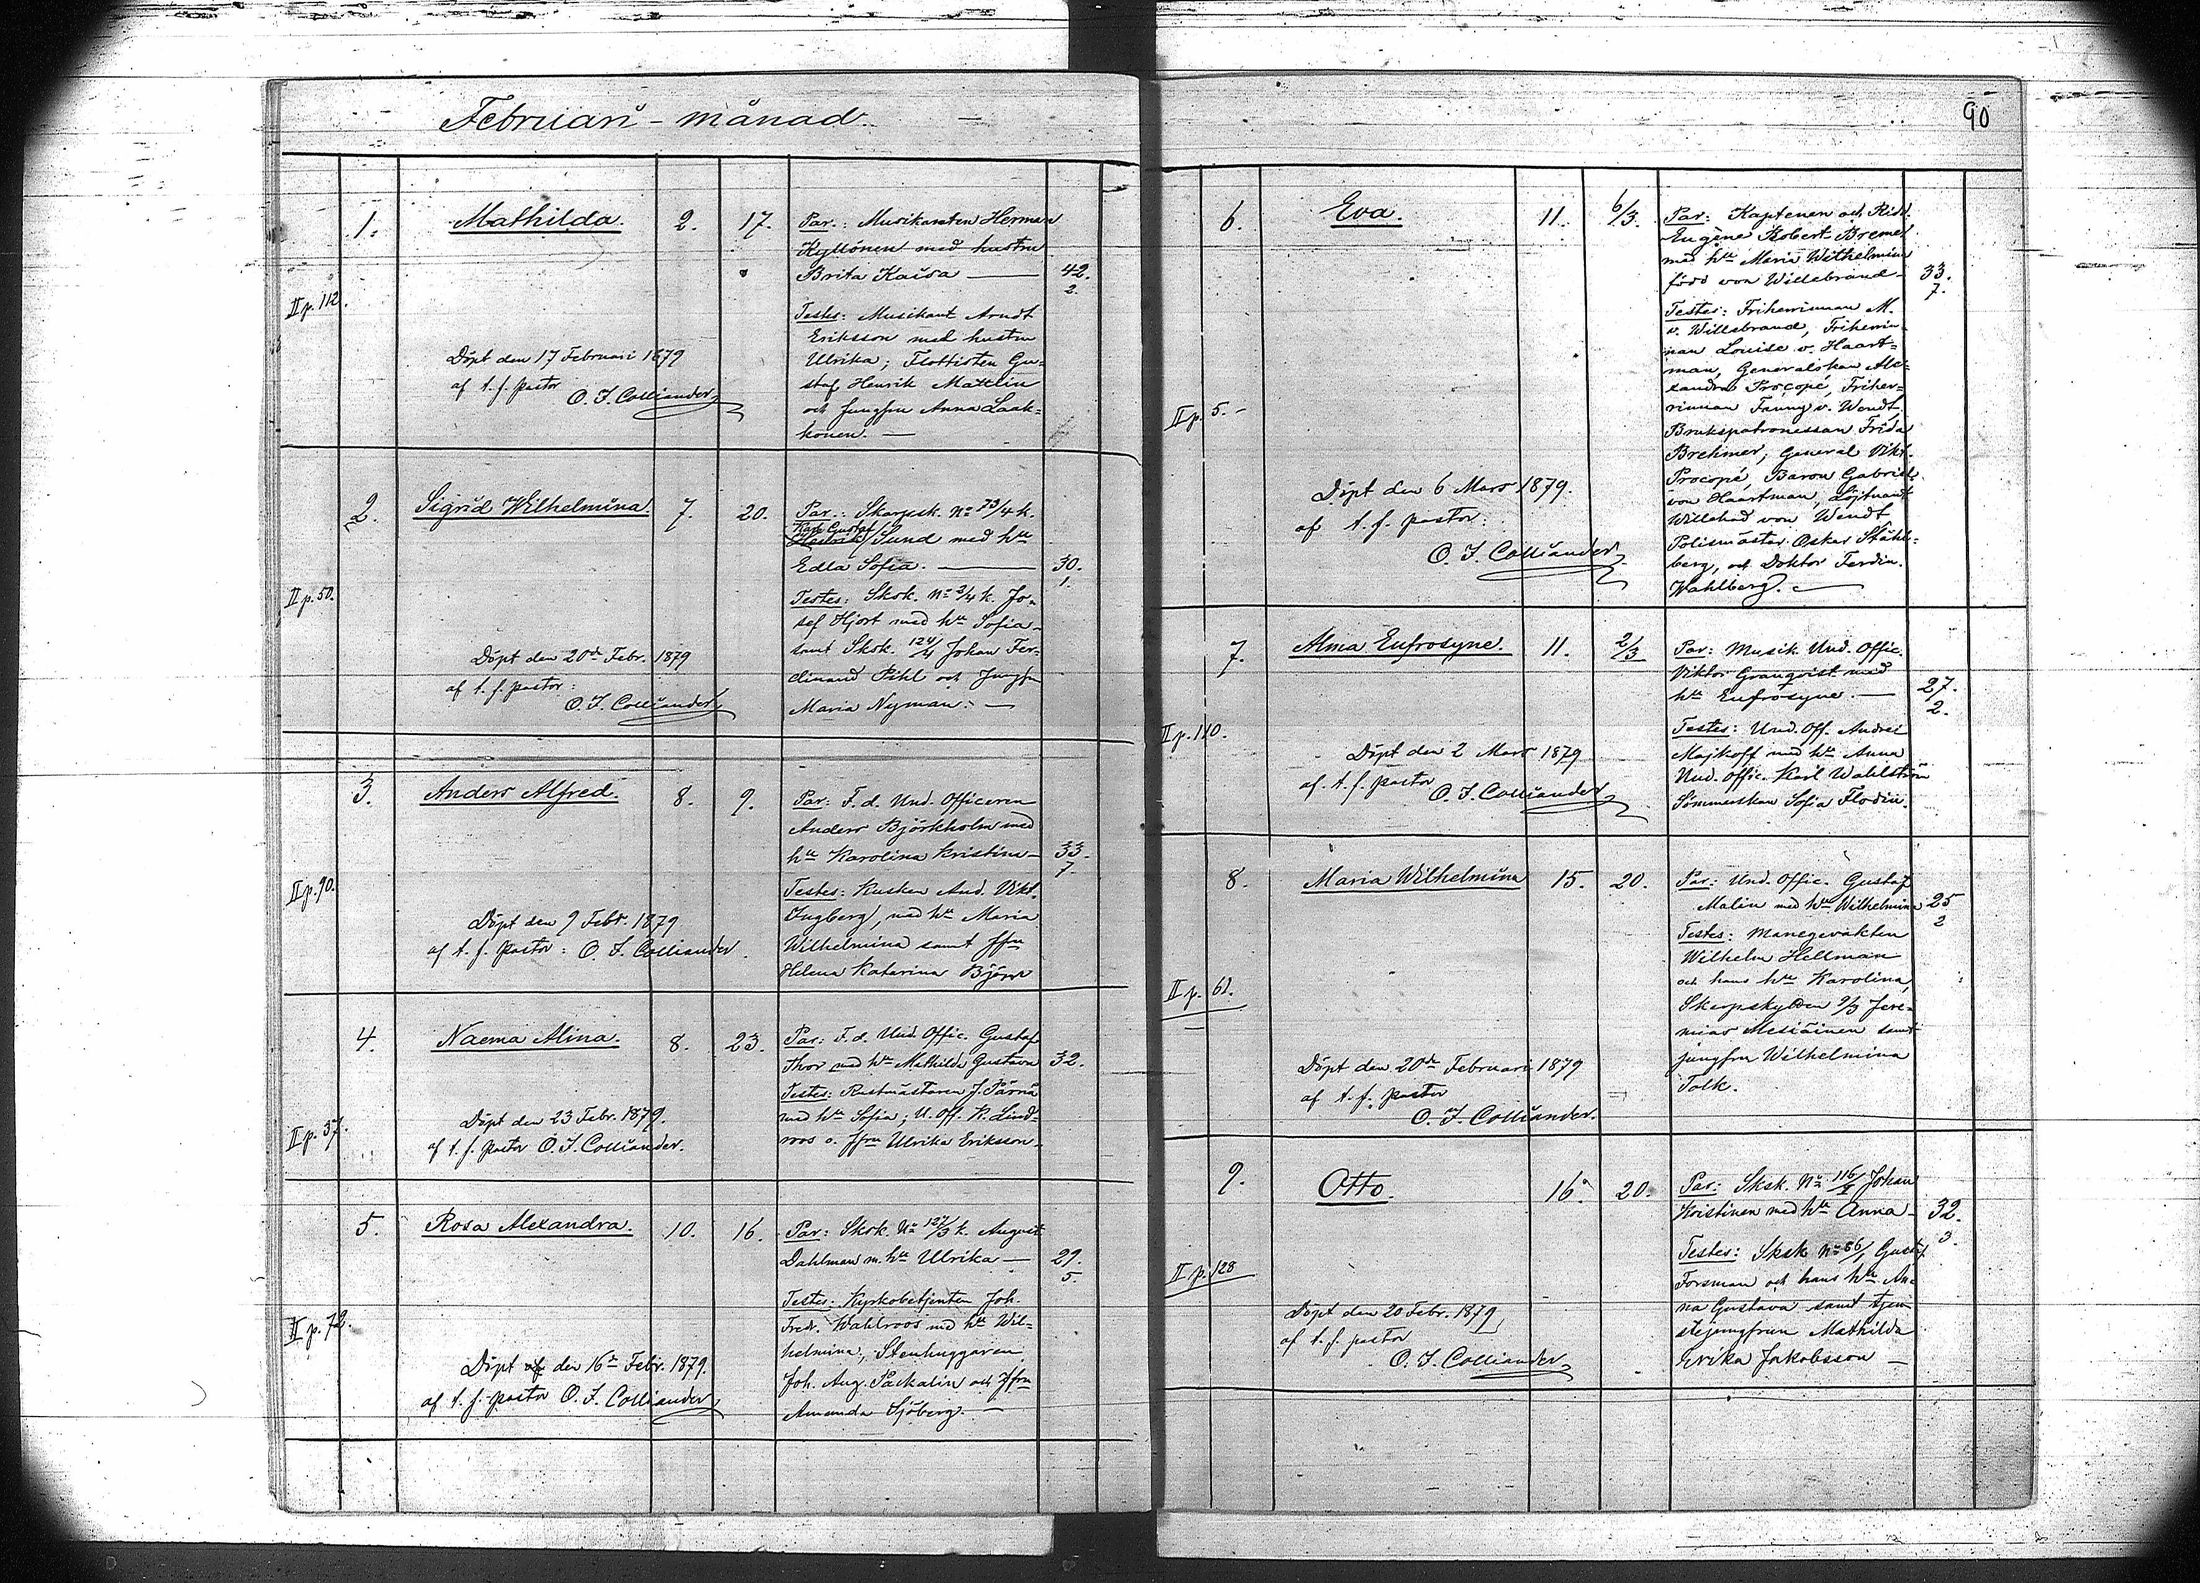 Februari - månad.
1.
Mathilda.
2.
17.
Par.: Musikanten Herman
Kyllönen med hustru
Brita Kaisa —
42.
2.
II p. 112.
Testes: Musikant Arndt
Eriksson med hustru
Ulrika; Flottisten Gu-
staf Henrik Mattlin
och Jungfru Anna Laak-
konen. —
Döpt den 17 Februari 1879
af t. f. pastor
O. I. Colliander
2.
Sigrid Wilhelmina.
7.
20.
Par.: Skarpsk. No 73/4 k.
Karl Gustaf
Sund med hu
Edla Sofia. —
30.
1.
II p. 50.
Testes: Sksk. No 2/4 k. Jo-
sef Hjort med hu Sofia
samt Sksk. 124/4 Johan Fer-
dinand Pihl och Jungfr
Maria Nyman. —
Döpt den 20de Febr. 1879
af t. f. pastor:
O. I. Colliander
3.
Anders Alfred.
8.
9.
Par: F. d. Und. Officeren
Anders Björkholm med
hu Karolina Kristina —
33.
7.
II p. 90.
Testes: Kusken And. Vikt.
Ingberg, med hu Maria
Wilhelmina samt Jfru
Helena Katarina
Döpt den 9 Febr. 1879
af t. f. Pastor: O. I. Colliander.
4.
Naema Alina.
8.
23.
Par: F. d. Und. Offic. Gustaf
Thor med hu Mathilda Gustava
32.
II p. 37.
Testes: Rustmästaren J. Pärnä
med hu Sofia; U. Off. K. Lind-
roos o. Jfru Ulrika Eriksson.
Döpt den 23 Febr. 1879.
af t. f. pastor O. I. Colliander.
5.
Rosa Alexandra.
10.
16.
Par: Sksk. No 127/3 k. August
Dahlman m. hu Ulrika —
29.
5.
II p. 72.
Testes: Kyrkobetjenten Joh.
Fredr. Wahlroos med hu Wil-
helmina, Stenhuggaren
Joh. Aug. Packalin och Jfru
Amanda Sjöberg. —
Döpt den 16de Febr. 1879.
af t. f. pastor O. I. Colliander
90
6.
Eva.
11.
6/3.
Par: Kaptenen och Ridd.
Eugène Robert Bremer
med hu Maria Wilhelmina
född von Willebrand —
33.
7.
II p. 5. -
Testes: Friherrinnan M.
v. Willebrand, Friherrin-
nan Louise v. Haart-
man, Generalskan Ale-
xandra Procopé, Friher-
rinnan Fanny v. Wendt,
Brukspatronessan Frida
Brehmer, General Vikt.
Procopé, Baron Gabriel
von Haartman, Löjtnant
Willehad von Wendt
Polismästar. Oskar Ståhl-
berg, och Doktor Ferdin.
Wahlberg. —
Döpt den 6 Mars 1879.
af t. f. pastor:
O. I. Colliander
7.
Alma Eufrosyne.
11.
2/3
Par: Musik. Und. Offic.
Viktor Granqvist med
hu Eufrosyne. —
27.
2.
II p. 110.
Testes: Und. Off. Andrei
Majkoff med hu Anna
Und. Offic. Karl Wahlström
Sömmerskan Sofia Flodin.
Döpt den 2 Mars 1879
af t. f. pastor
O. I. Colliander
8.
Maria Wilhelmina
15.
20.
Par: Und. Offic. Gustaf
Malin med hu Wilhelmina
25
2
II p. 61.
Testes: Manegevakten
Wilhelm Hellman
och hans hu Karolina,
Skarpskytten 9/3 Jere-
mias Mesiäinen samt
jungfru Wilhelmina
Tolk.
Döpt den 20de Februari 1879
af t. f. pastor
O. I. Colliander.
9.
Otto.
16.
20.
Par: Sksk. No 116/ Johan
Kristinen med hu Anna —
32.
3.
II p. 128
Testes: Sksk No 86/1 Gustaf
Forsman och hans hu An-
na Gustava samt tjen-
stejungfrun Mathilda
Erika Jakobsson —
Döpt den 20 Febr. 1879
af t. f. pastor
O. I. Colliander